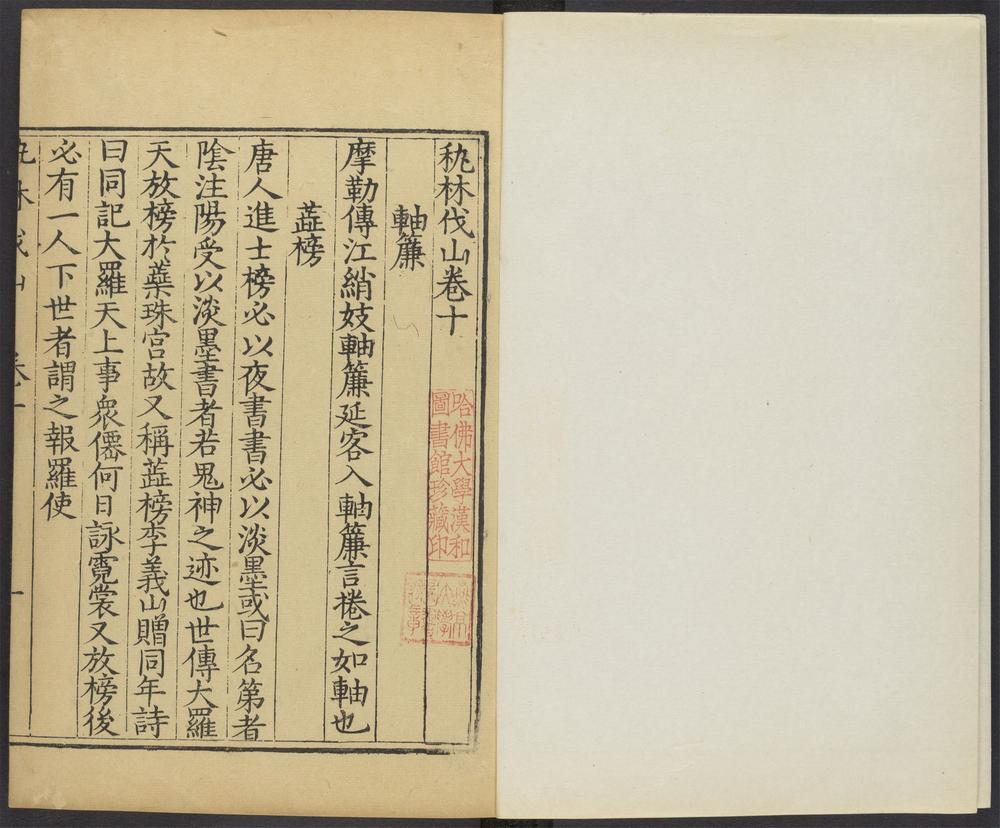 秇林伐山卷十
軸簾
摩勒傳江綃妓軸簾延客入軸簾言捲之如軸也
蘂榜
唐人進士榜必以夜書書必以淡墨或曰名第者
陰注陽受以淡墨書者若鬼神之迹也世傳大羅
天放榜於蘂珠宫故又稱蘂榜李義山贈同年詩
曰同記大羅天上事衆僊何日詠霓裳又放榜後
必有一人下世者謂之報羅使
哈佛大學漢和
圖書館珍藏印